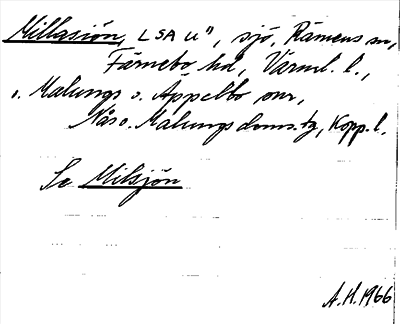 Millasjön, LSA U", sjö, Rämens sn,
Färnebo hd, Värml. l.,
o. Malungs o. Äppelbo snr,
Nås o. Malungs doms.tg, Kopp. l.
Se Milsjön
A.H. 1966